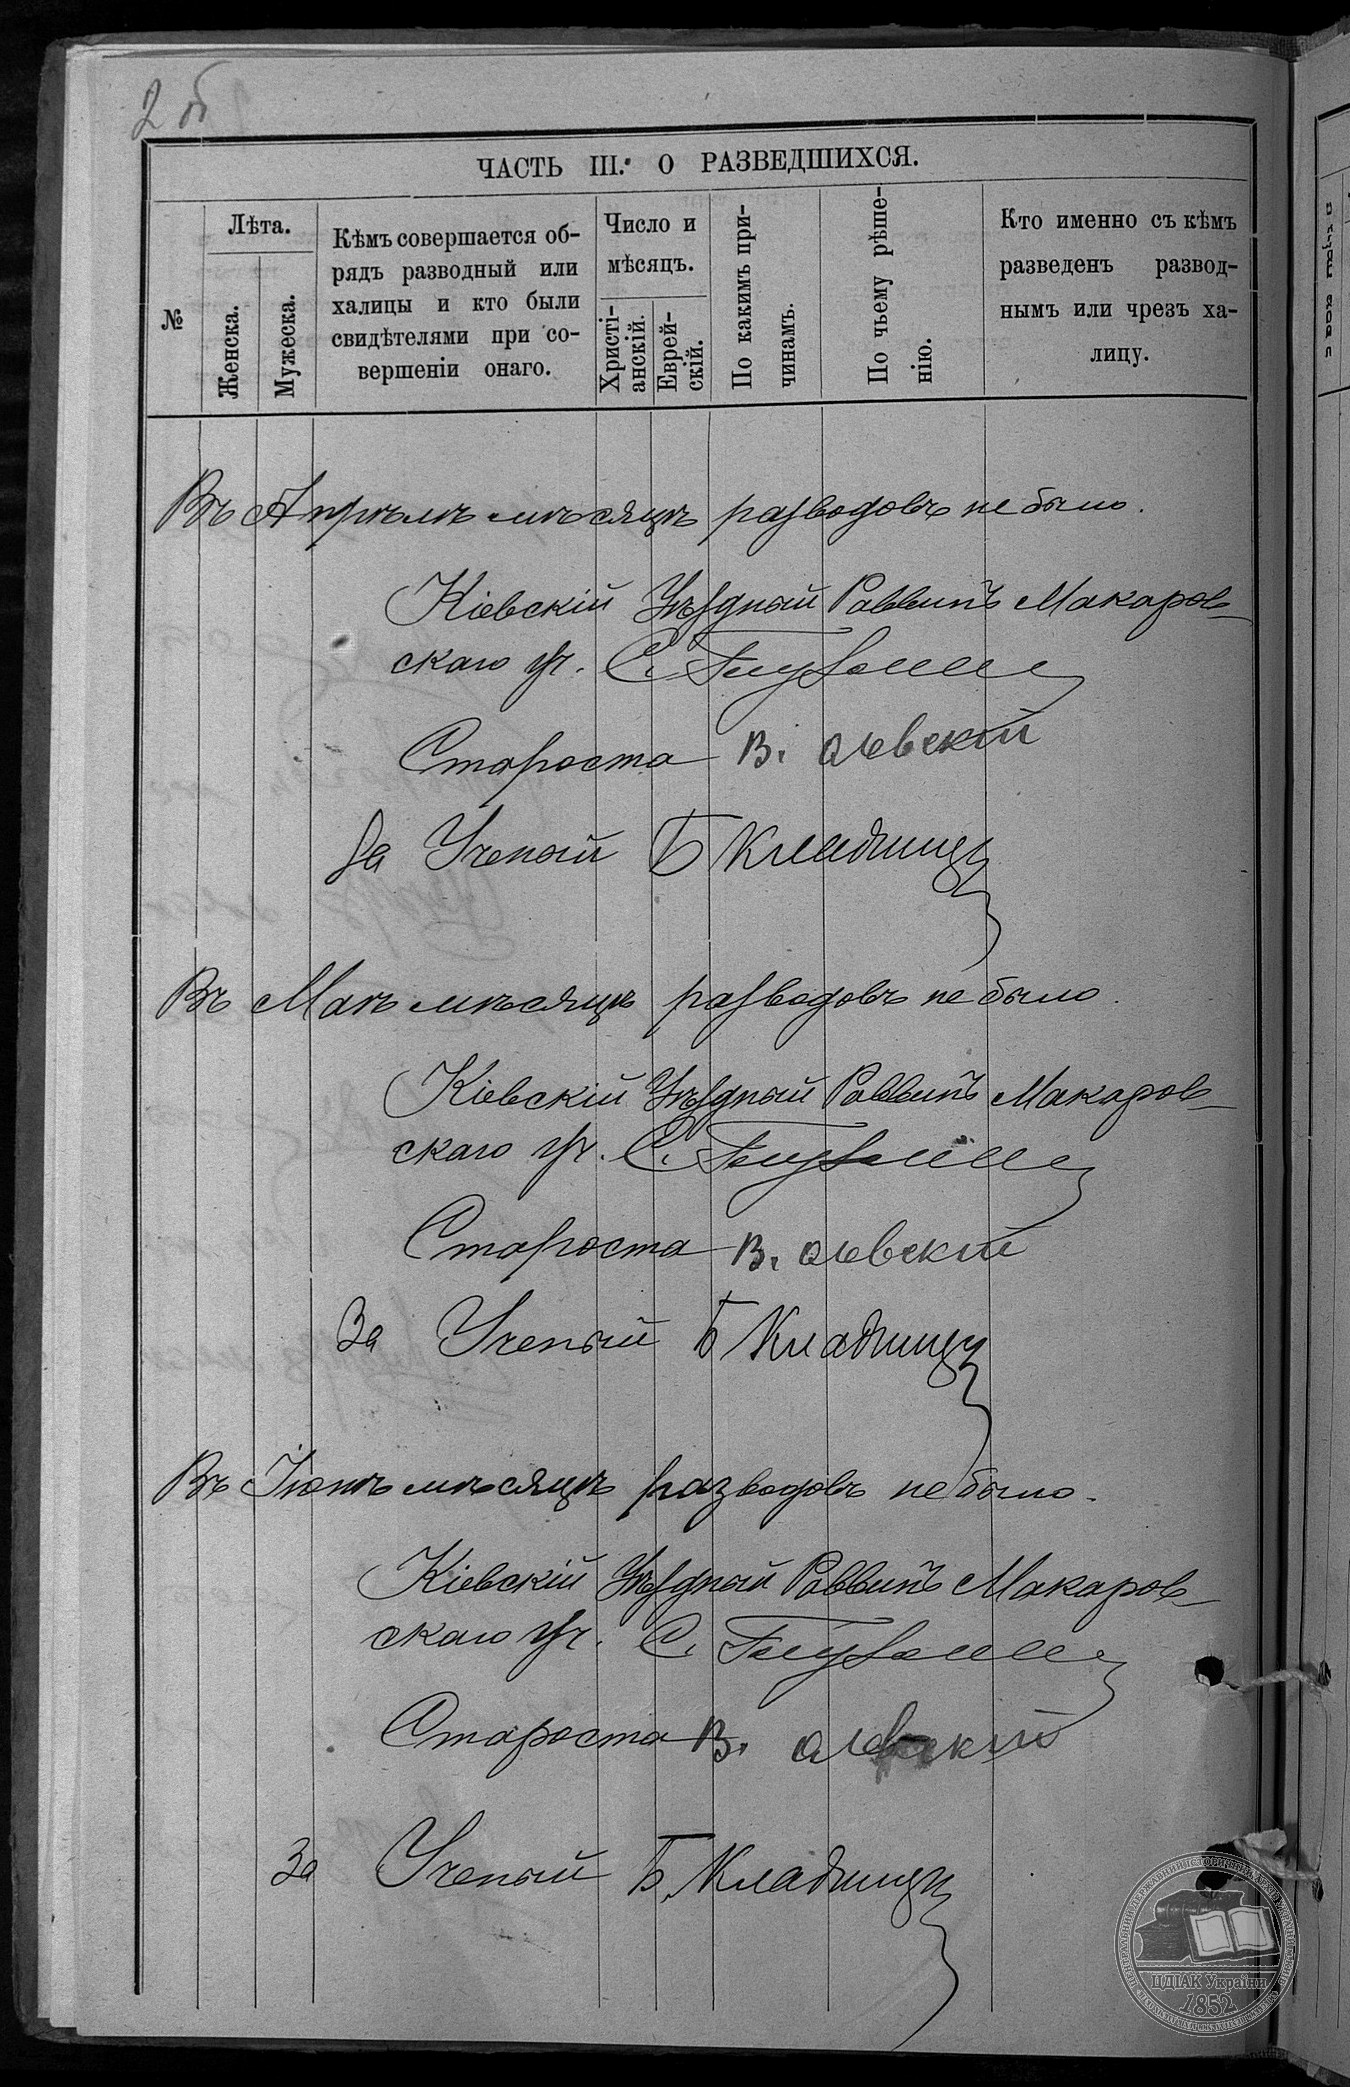 2 об
ЧАСТЬ III. О РАЗВЕДШИХСЯ.
№
Лѣта.
Женска.
Мужеска.
Кѣмъ совершается об-
рядъ разводный или
халицы и кто были
свидѣтелями при со-
вершеніи онаго.
Число и
мѣсяцъ.
Христі-
анскій.
Еврей-
скій.
По какимъ при-
чинамъ.
По чьему рѣше-
нію.
Кто именно съ кѣмъ
разведенъ развод-
нымъ или чрезъ ха-
лицу.
Въ Апрѣлѣ мѣсяцѣ разводовъ не было.
Кіевскій Уѣздный Раввинъ Макаров-
скаго уч. С.
Староста В.
За Ученый Б
Въ Маѣ мѣсяцѣ разводовъ не было.
Кіевскій Уѣздный Раввинъ Макаров-
скаго уч. С.
Староста В.
За Ученый Б
Въ Іюнѣ мѣсяцѣ разводовъ не было.
Кіевскій Уѣздный Раввинъ Макаров-
скаго уч. С.
Староста В.
За Ученый Б.
ЦДІАК України
1852